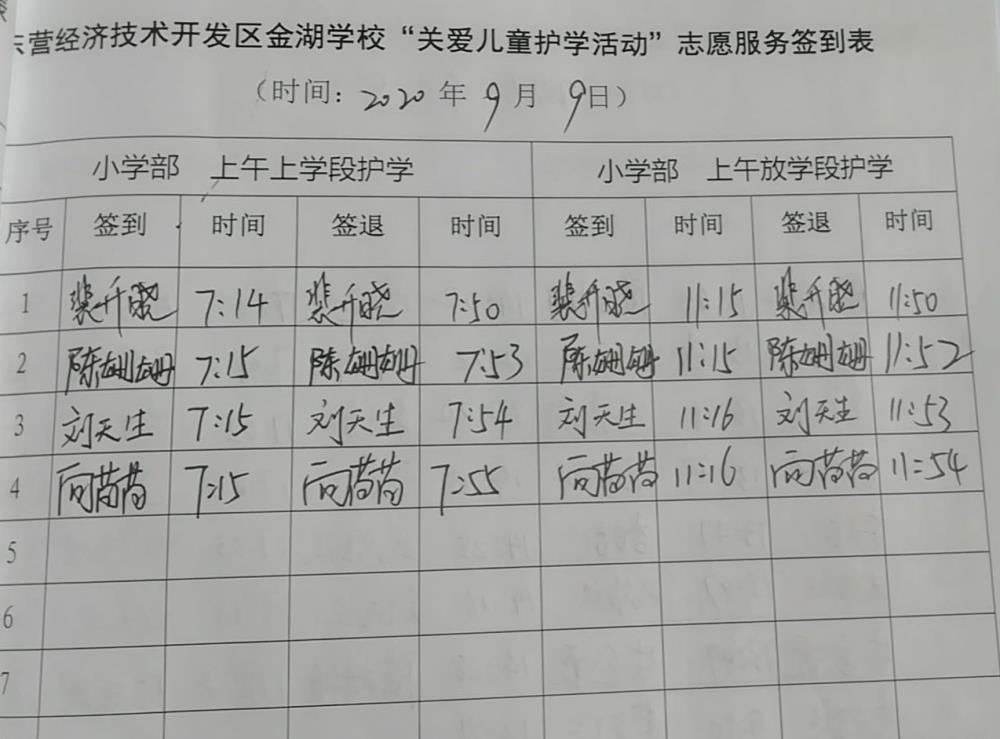 东营经济技术开发区金湖学校“关爱儿童护学活动”志愿服务签到表
（时间：2020年9月9日）
小学部 上午上学段护学 小学部 上午放学段护学
序号 签到 时间 签退 时间 签到 时间 签退 时间
1 裴升晓 7:14 裴升晓 7:50 裴升晓 11:15 裴升晓 11:50
2 陈姗姗 7:15 陈姗姗 7:53 陈姗姗 11:15 陈姗姗 11:52
3 刘天生 7:15 刘天生 7:54 刘天生 11:16 刘天生 11:53
4 7:15 7:55 11:16 11:54
5
6
7